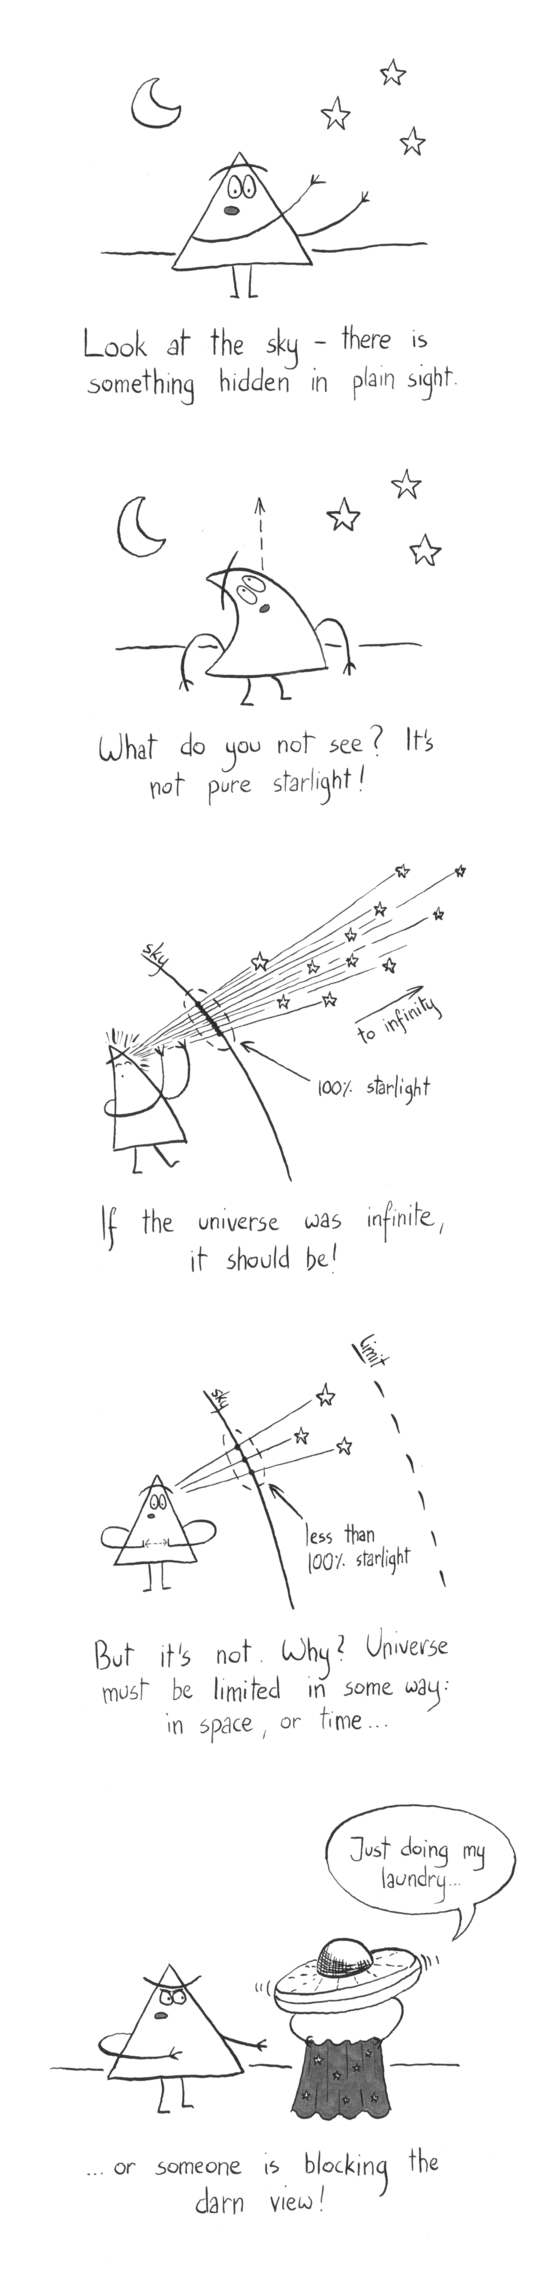 Look at the sky - there is
something hidden in plain sight.
What do you not see? It's
not pure starlight!
sky
to infinity
100% starlight
If the universe was infinite,
it should be!
limit
sky
less than
100% starlight
But it's not. Why? Universe
must be limited in some way:
in space, or time...
Just doing my
laundry...
...or someone is blocking the
darn view!